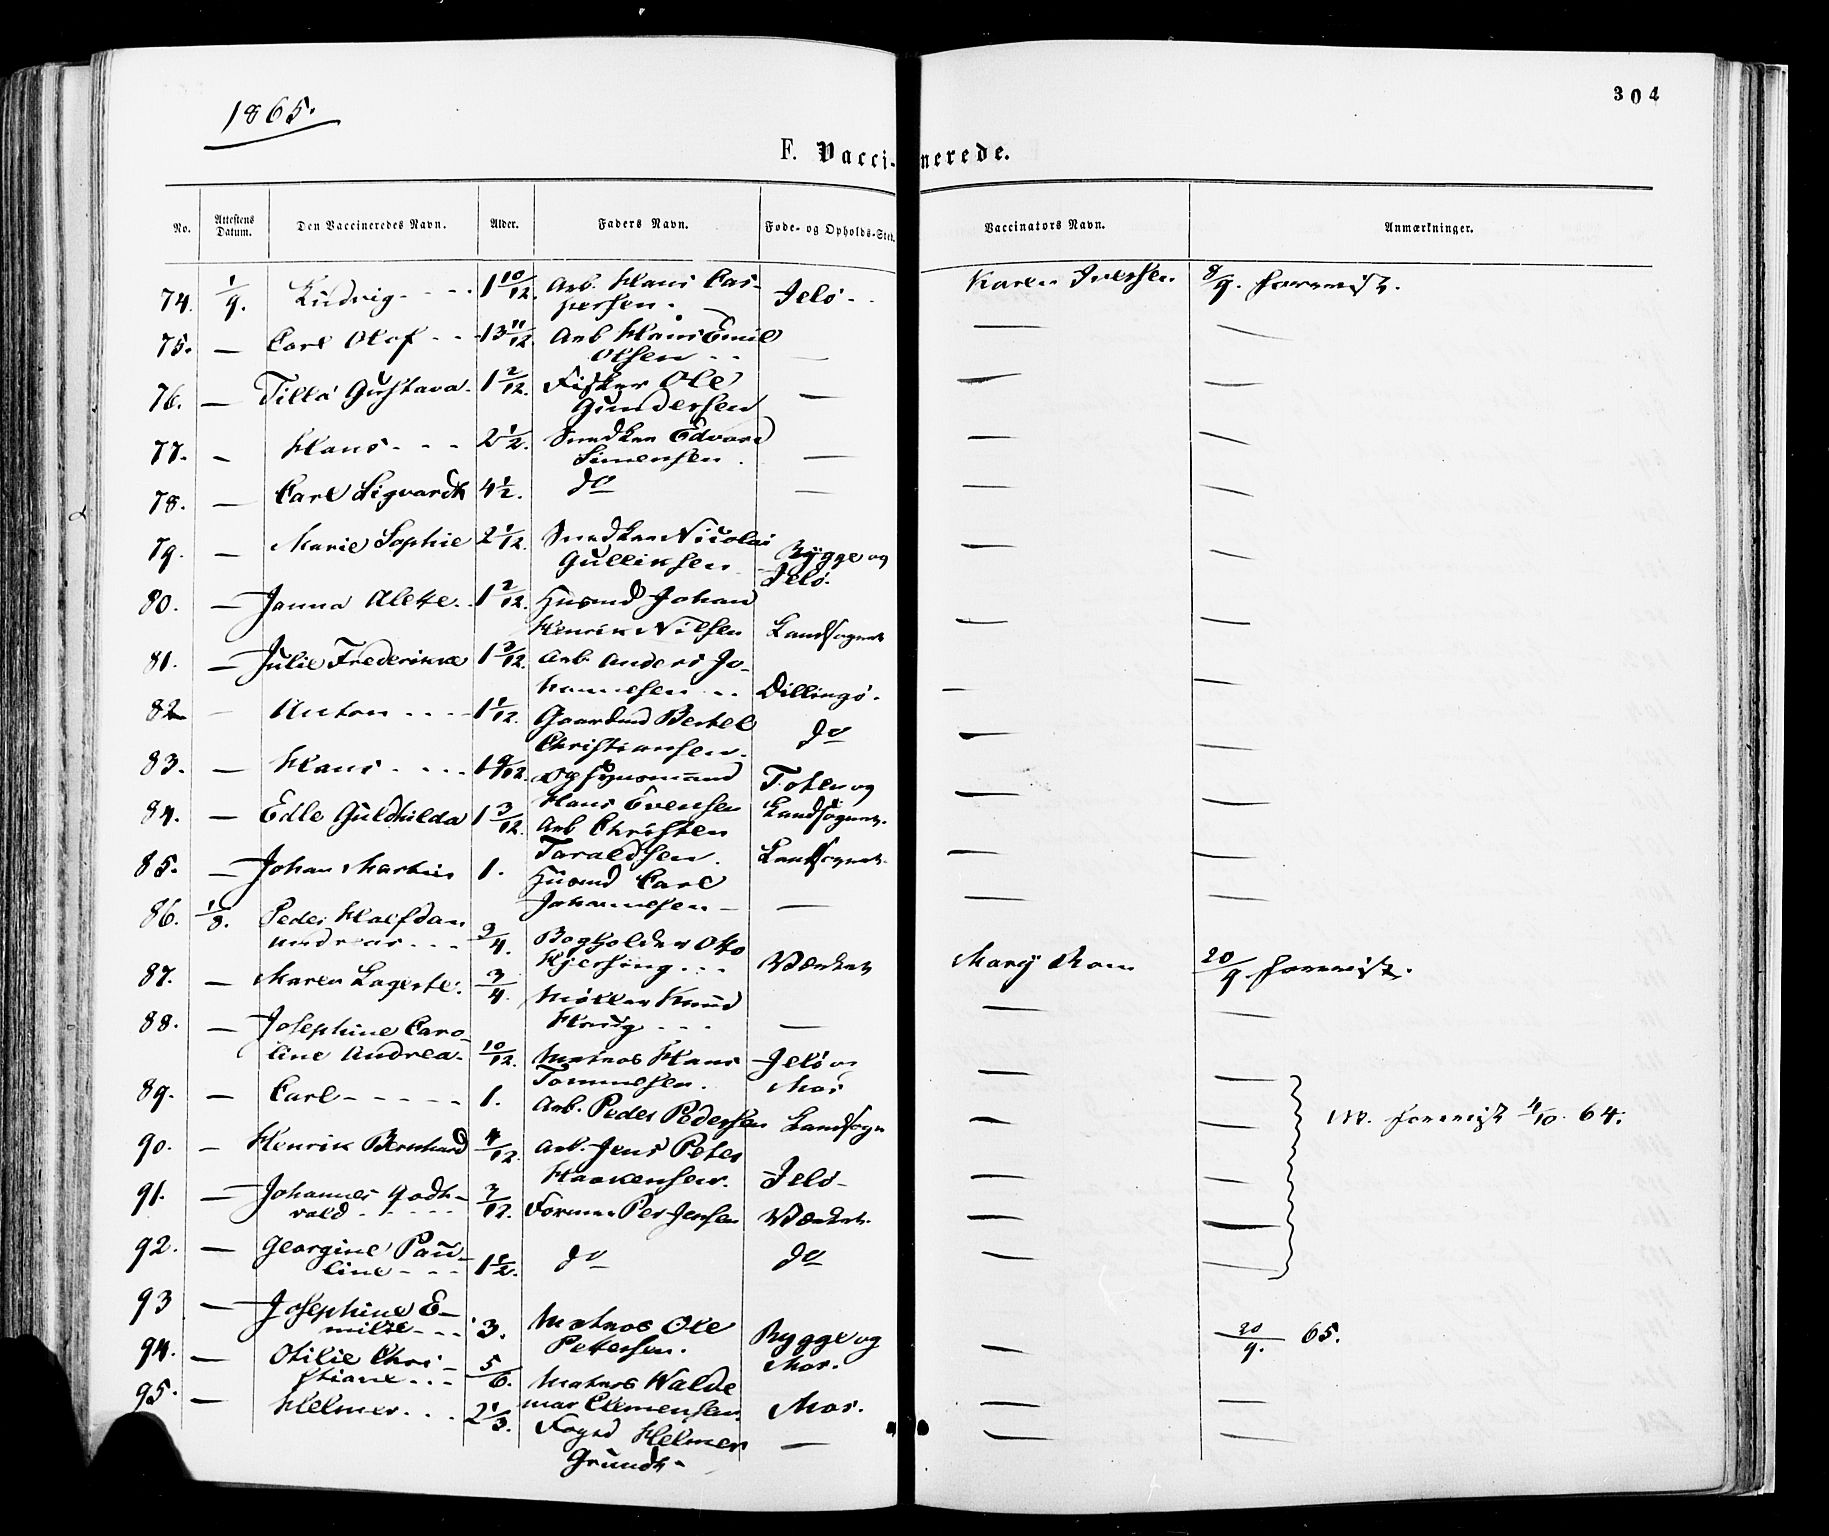 304
1865.
F. Vaccinerede.
No. Attestens Datum. Den Vaccineredes Navn. Alder. Faders Navn. Føde- og Opholds-Sted. Vaccinators Navn. Anmærkninger.
74. 1/9. Ludvig - - - 1 10/12. Arb. Hans Cas- Jelø - - Karen Iversen 8/9. forevist.
persen.
75. — Carl Olaf - - 13 11/12 Arb Hans Emil
Olsen - - — — —
76. — Tilla Gustava. 1 2/12. Fisker Ole
Gundersen — — —
77. - Hans - - - 2 1/2. Snedker Edvard
Simensen. — — —
78. — Carl Sigvardt 4 1/2. do — — —
79. — Marie Sophie 2 1/12. Snedker Nicolai
Gulliksen Rygge og
Jelø. — —
80. — Janna Alette. 1 2/12. Husmd Johan
Henrik Nilsen Landsognet — —
81. — Julie Frederikke 1 2/12. Arb. Anders Jo-
hannesen - - Dillingø. — —
82 - Anton - - - 1 1/12. Gaardmd Bertel
Christiansen. do — —
83. — Hans - - - 1 9/12. Opsynsmand Toten og
Hans Evensen Landsognet. — —
84. — Edle Guldhilda 1 3/12. Arb Christen
Taraldsen. Landsognet — —
85. — Johan Martin 1. Husmd Carl
Johannesen - — — —
86. 1/8. Peder Halfdan
Andreas - - - 3/4. Bogholder Otto
Kjersing - - - Værket Mary Mom 20/9. forevist.
87. — Maren Lagerte. 3/4. Møller Knud
Houg - - - — — —
88. — Josephine Caro-
line Andrea. 10/12. Matros Hans Jelø og
Tommesen. Mos — —
89. — Carl - - - - - 1. Arb. Peder Pedersen Landsogn — — M. forevist 4/10. 64.
90. — Henrik Bernhard 4/12. Arb. Jens Peter
Haakensen. Jelø - — —
91. — Johannes Godt-
vald - - - - - 3/12. Former Per Jensen Værket. — —
92. — Georgine Pau-
line - - - 1 1/2. do do — —
93 — Josephine E-
milie - - - 3. Matros Ole Rygge og
Petersen. Mos. — 20/9. 65.
94. — Otilie Chri-
stiane - - - 5/6. Matros Walde
mar Clemensen. Mos. — —
95. — Helmer - - - 2 1/3. Foged Helmer
Grundt - — — —